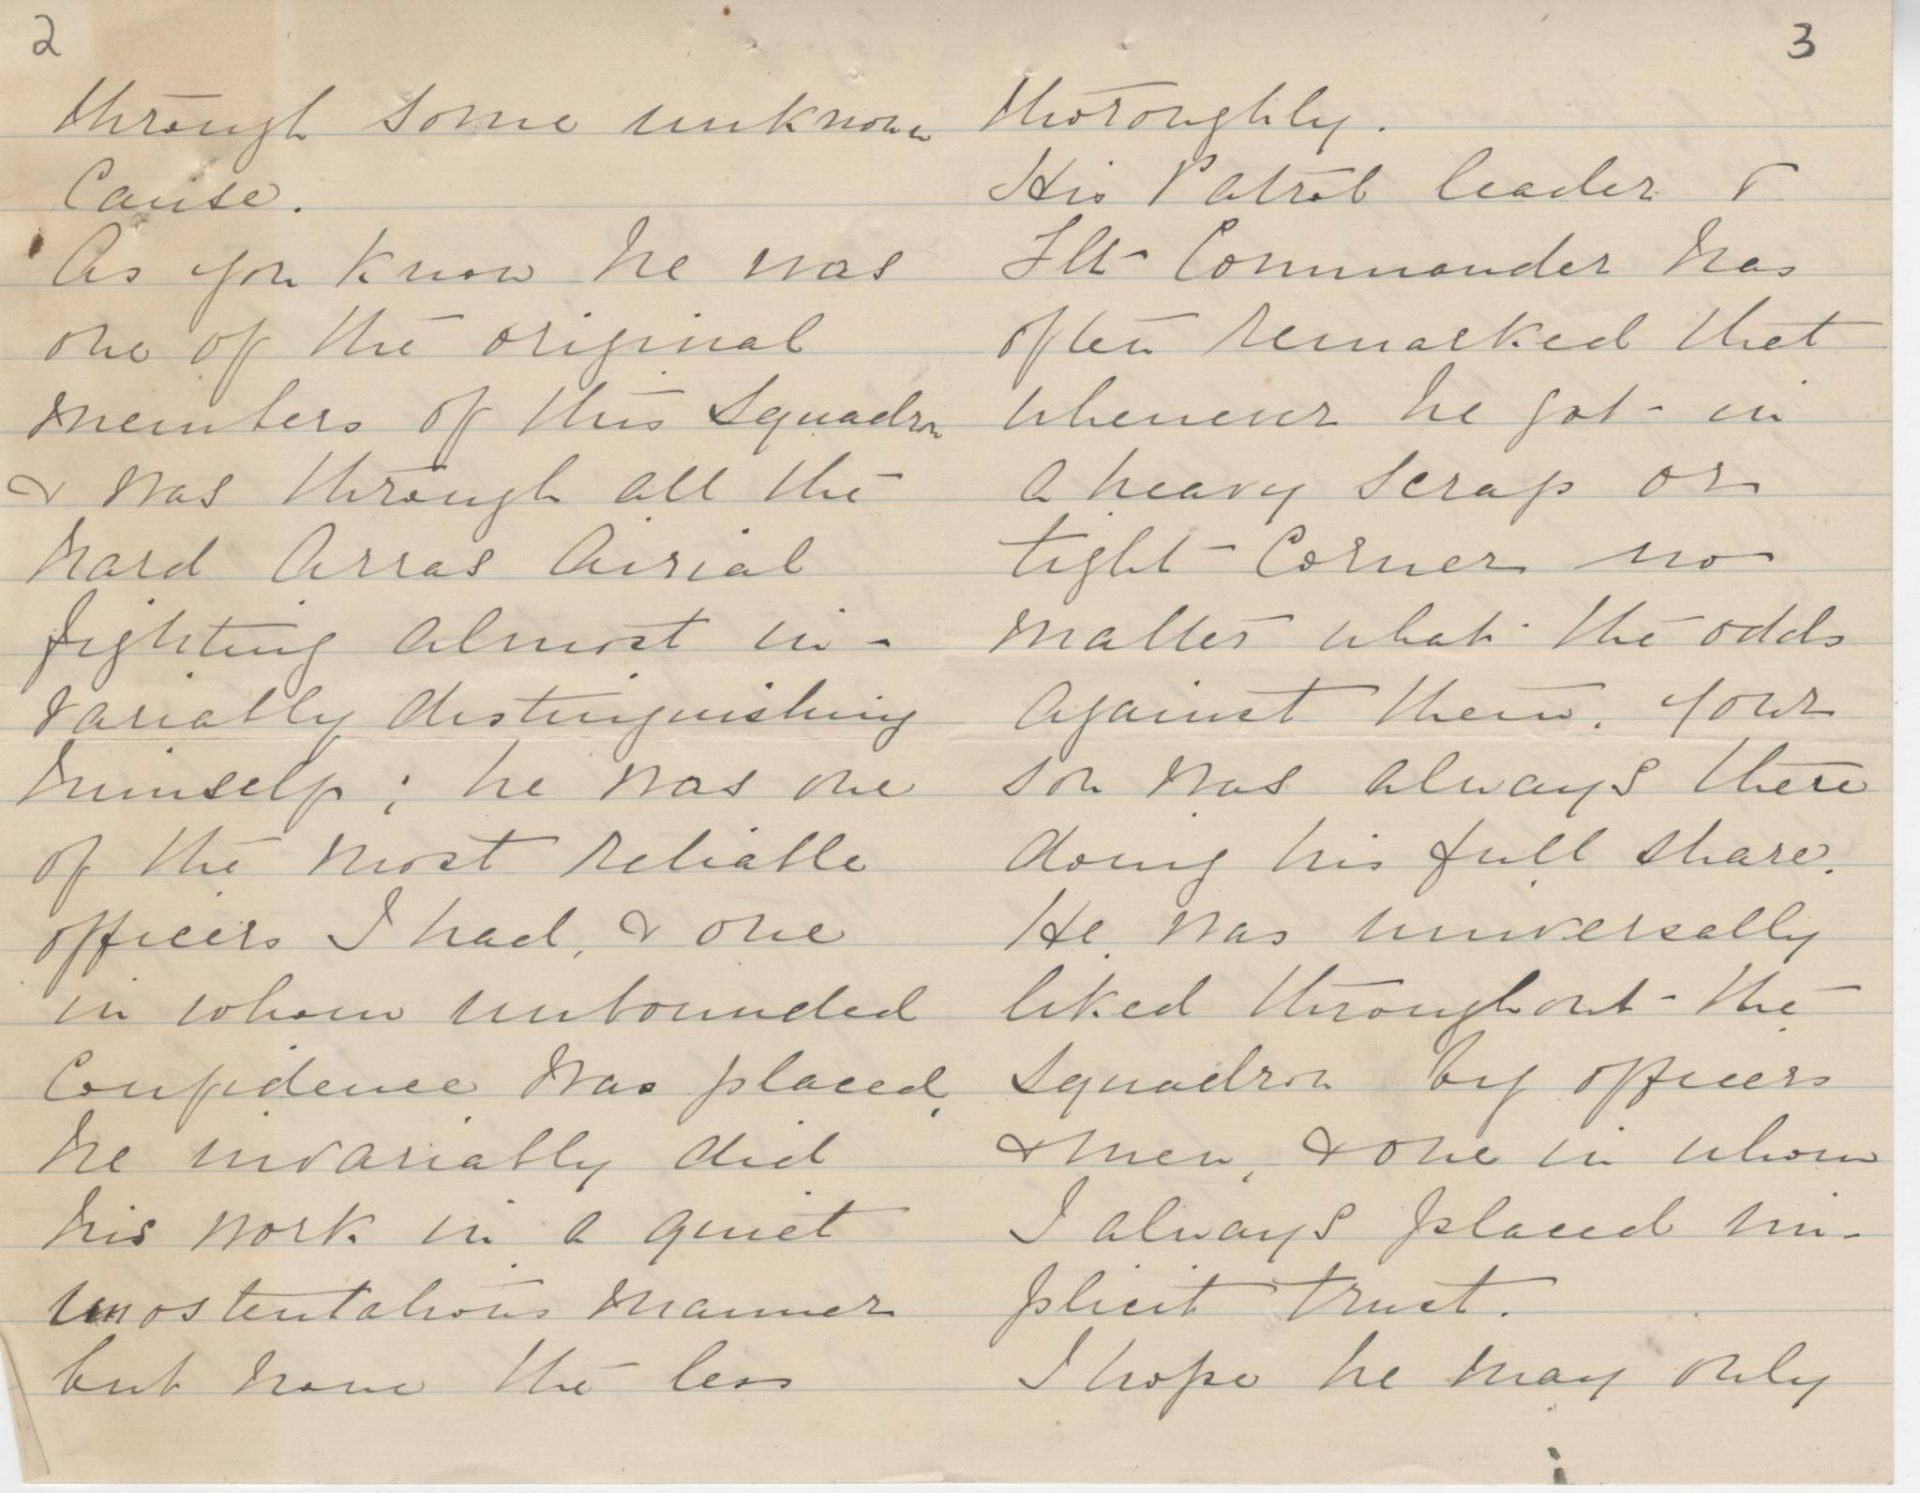 2
through some unknown
Cause.
As you know he was
one of the original
members of this Squadron
& was through all the
hard Arras Airial
fighting almost in-
variably distinguishing
himself; he was one
of the most reliable
officers I had, & one
in whom unbounded
Confidence was placed,
he invariably did
his work in a quiet
unostentatious manner
but none the less
3
thoroughly.
His Patrol leader &
Flt Commander has
often remarked that
whenever he got in
a heavy scrap or
tight Corner no
matter what the odds
against them. Your
son was always there
doing his full share.
He was universally
liked throughout the
Squadron by officers
& men, & one in whom
I always placed im-
plicit trust.
I hope he may only